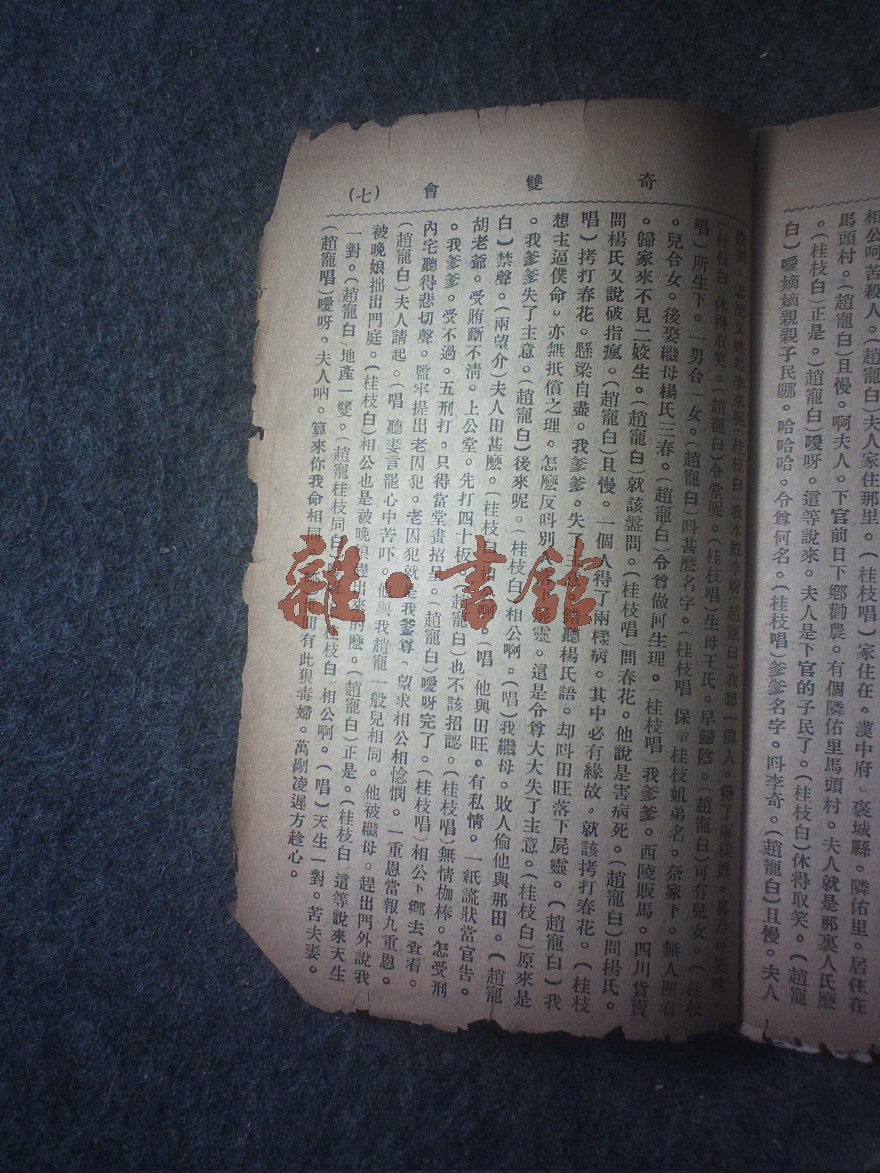 相公呵苦殺人。(趙寵白)夫人家住那里。(桂枝唱)家住在。漢中府。褒城縣。隣佑里。居住在
馬頭村。(趙寵白)且慢。啊夫人。下官前日下鄉勸農。有個隣佑里馬頭村。夫人就是那裏人氏麽
。(桂枝白)正是。(趙寵白)噯呀。這等說來。夫人是下官的子民了。(桂枝白)休得取笑。(趙寵
白)噯嫡嫡親親子民哪。哈哈哈。令尊何名。(桂枝唱)爹爹名字。呌李奇。(趙寵白)且慢。夫人
姓李呢(桂枝白)我本姓李呀(趙寵白)我想一個人。得了兩樣姓。
(桂枝白 休得取笑。(趙寵白)令堂呢。(桂枝唱)生母王氏。早歸陰。(趙寵白)可有兒女。(桂枝
唱)所生下。一男合一女。(趙寵白)呌甚麽名字。(桂枝唱 保童桂枝姐弟名。奈家下。無人照看
。兒合女。後娶繼母楊氏三春。(趙寵白)令尊做何生理。(桂枝唱)我爹爹。西陵販馬。四川貨賣
。歸家來不見二姣生。(趙寵白)就該盤問。(桂枝唱)問春花。他說是害病死。(趙寵白)問楊氏。
問楊氏又說破指瘋。(趙寵白)且慢。一個人得了兩樣病。其中必有緣故。就該拷打春花。(桂枝
唱)拷打春花。懸梁自盡。我爹爹。失了主意。錯聽楊氏語。却呌田旺落下屍靈。(趙寵白)我
想主逼僕命。亦無抵償之理。怎麽反呌別靈。這是令尊大大失了主意。(桂枝白)原來是
。我爹爹失了主意。(趙寵白)後來呢。(桂枝白)相公啊。(唱)我繼母。敗人偷他與那田。(趙寵
白)禁聲。(兩望介)夫人田甚麽。(桂枝白)相公啊。(唱)他與田旺。有私情。一紙謊狀當官告。
胡老爺。受賄斷不清。上公堂。先打四十板。(趙寵白)也不該招認。(桂枝唱)無情枷棒。怎受刑
。我爹爹。受不過。五刑打。只得當堂畫招呈。(趙寵白)噯呀完了。(桂枝唱)相公下鄉去查看。
內宅聽得悲切聲。監牢提出老囚犯。老囚犯就是我爹尊。望求相公相憐憫。一重恩當報九重恩。
(趙寵白)夫人請起。(唱 聽妻言罷心中苦吓。他與我趙寵一般兒相同。他被繼母。趕出門外說我
被晚娘拙出門庭。(桂枝白)相公也是被晚娘趕出來的麽。(趙寵白)正是。(桂枝白 這等說來天生
一對。(趙寵白)地產一雙。(趙寵桂枝同白)(桂枝白)相公啊。(唱)天生一對。苦夫妻。
(趙寵唱)噯呀。夫人吶。算來你我命相同。間有此狠毒婦。萬剮凌遲方趁心。
奇雙會 (七)
雜·書館